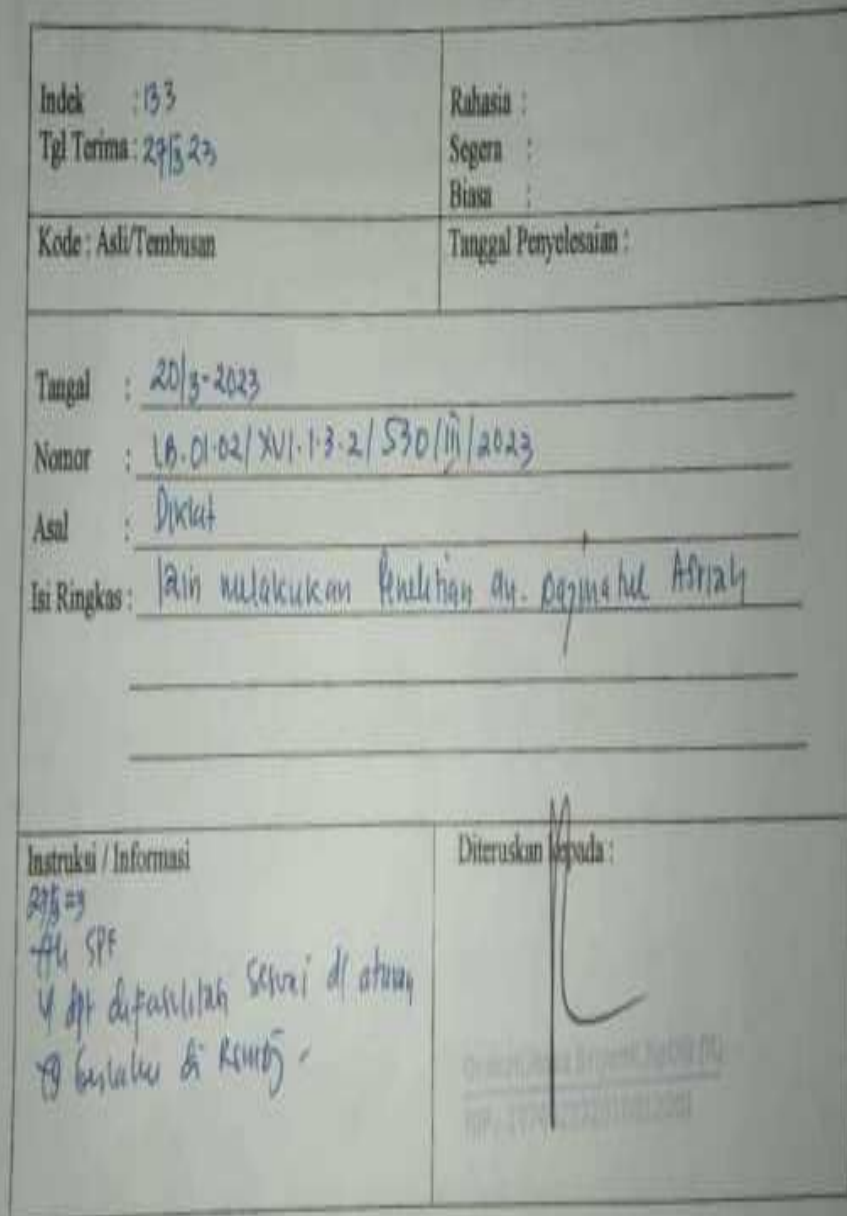 Indek : 133
Tgl Terima : 27/3 23
Rahasia :
Segera :
Biasa :
Kode : Asli/Tembusan
Tanggal Penyelesaian :
Tangal : 20/3-2023
Nomor : LB.01.02/XVI.1.3.2/530/III/2023
Asal : Diklat
Isi Ringkas : Izin melakukan Penelitian an. Asriah
Instruksi / Informasi
27/3 23
SPF
dpt difasilitasi sesuai
berlaku di
Diteruskan kepada :